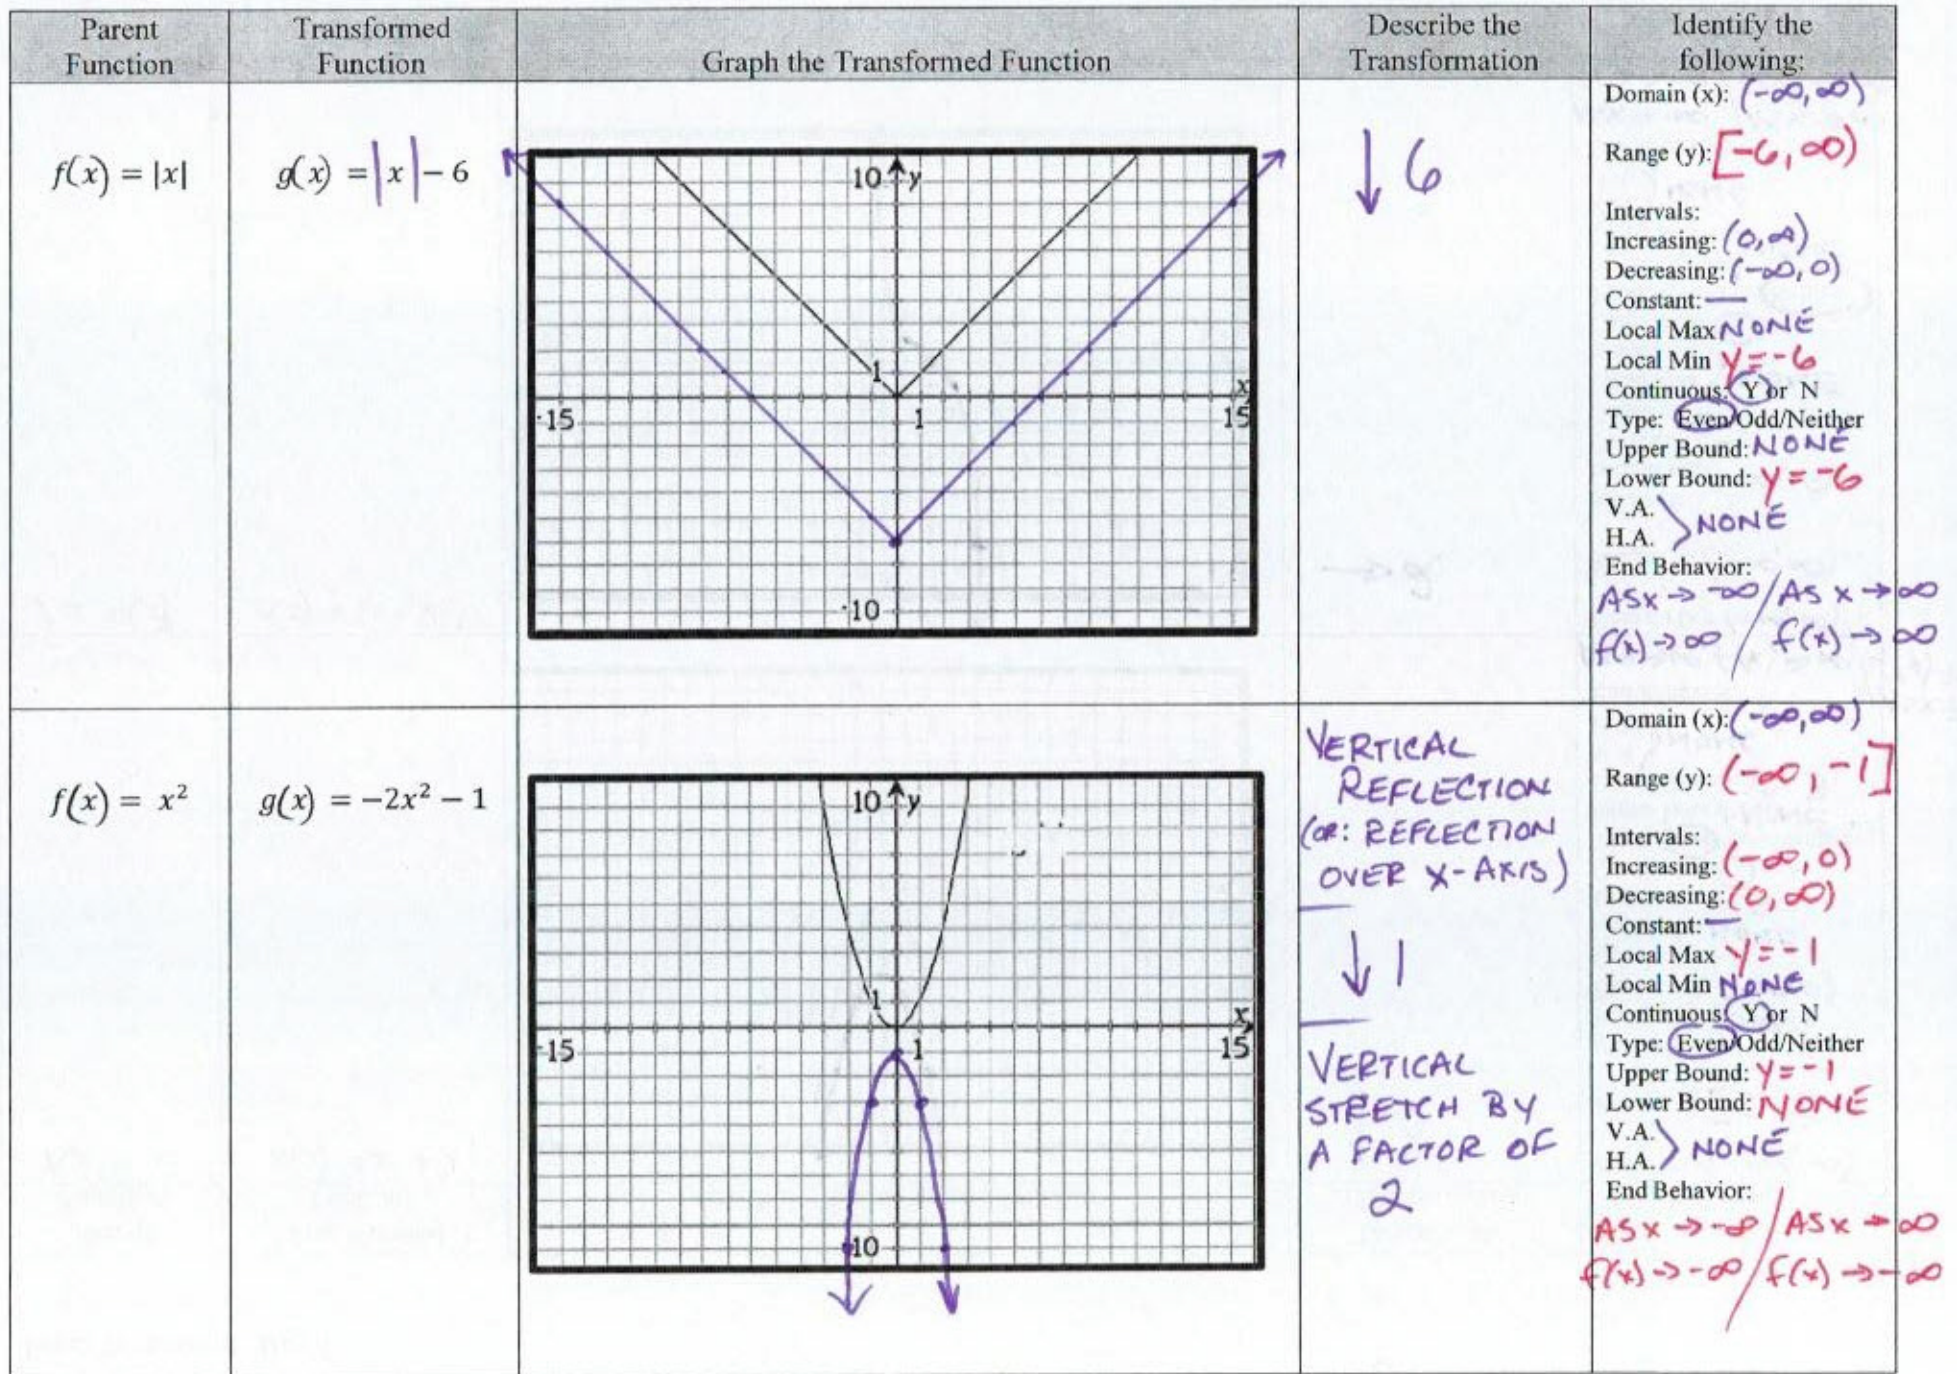 Parent
Function
Transformed
Function
Graph the Transformed Function
Describe the
Transformation
Identify the
following:
f(x) = |x|
g(x) = |x| − 6
10 y
1
x
-15
1
15
-10
↓ 6
Domain (x): (-∞, ∞)
Range (y): [-6, ∞)
Intervals:
Increasing: (0, ∞)
Decreasing: (-∞, 0)
Constant: —
Local Max NONE
Local Min y = -6
Continuous: Y or N
Type: Even/Odd/Neither
Upper Bound: NONE
Lower Bound: y = -6
V.A.
H.A. > NONE
End Behavior:
AS x → -∞ / AS x → ∞
f(x) → ∞ / f(x) → ∞
f(x) = x²
g(x) = −2x² − 1
10 y
1
x
-15
1
15
-10
VERTICAL
REFLECTION
(OR: REFLECTION
OVER X-AXIS)
↓ 1
VERTICAL
STRETCH BY
A FACTOR OF
2
Domain (x): (-∞, ∞)
Range (y): (-∞, -1]
Intervals:
Increasing: (-∞, 0)
Decreasing: (0, ∞)
Constant: —
Local Max y = -1
Local Min NONE
Continuous: Y or N
Type: Even/Odd/Neither
Upper Bound: y = -1
Lower Bound: NONE
V.A.
H.A. > NONE
End Behavior:
AS x → -∞ / AS x → ∞
f(x) → -∞ / f(x) → -∞